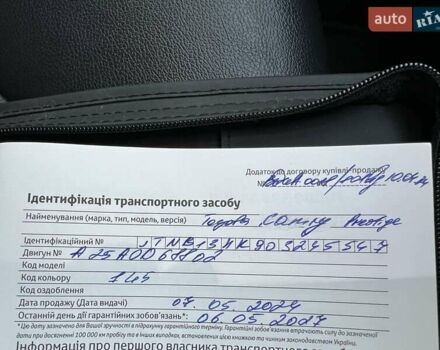 auto RIA
Додаток до договору купівлі-продажу
№
Ідентифікація транспортного засобу
Найменування (марка, тип, модель, версія) Toyota Camry Prestige
Ідентифікаційний № JTNB13HK903245547
Двигун № A25A0068802
Код моделі
Код кольору 1G5
Код оздоблення
Дата продажу (Дата видачі) 07.05.2024
Останній день дії гарантійних зобов'язань*: 06.05.2027
*Цю дату зазначено для Вашої зручності в підрахунку гарантійного терміну. Гарантійні зобов'язання втрачають силу до зазначеної
дати при досягненні 100 000 км пробігу та в інших випадках, встановлених цією книжкою та чинним законодавством України.
Інформація про першого власника транспортного